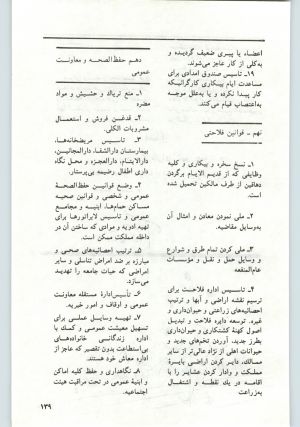 اعضاء یا پیری ضعیف گردیده و
به‌کلی از کار عاجز می‌شوند.
۱۹ـ تاسیس صندوق امدادی برای
مساعدت ایام بیکاری کارگرانیکه
کار پیدا نکرده و یا به‌علل موجه
به‌اعتصاب قیام می‌کنند.
نهم ـ قوانین فلاحتی
۱ـ نسخ سخره و بیکاری و کلیه
وظایفی که از قدیم الایام برگردن
دهاقین از طرف مالکین تحمیل شده
است.
۲ـ ملی نمودن معادن و امثال آن
به‌وسایل مقتضیه.
۳ـ ملی کردن تمام طرق و شوارع
و وسایل حمل و نقل و مؤسسات
عام‌المنفعه
۴ـ تاسیس اداره فلاحت برای
ترسیم نقشه اراضی و آبها و ترتیب
احصائیه‌های زراعتی و حیوان‌داری
خود، توسعه دایره فلاحت و تبدیل
اصول کهنهٔ کشتکاری و حیوان‌داری
به‌طرز جدید، آوردن تخم‌های جدید و
حیوانات اهلی از نژاد عالی‌تر از سایر
ممالک، دایر کردن اراضی بایرهٔ
مملکت و وادار کردن عشایر را با
اقامه در یک نقطه و اشتغال
بفلاحت
دهم حفظ‌الصحه و معاونت
عمومی
۱ـ منع تریاک و حشیش و مواد
مضره
۲ـ قدغن فروش و استعمال
مشروبات الکلی.
۳ـ تاسیس مریضخانه‌ها،
بیمارستان دارالشفاء، دارالمجانین،
دارالایتام، دارالعجزه و محل نگاه
داری اطفال رضیعه بی‌پرستار.
۴ـ وضع قوانین حفظ‌الصحهٔ
عمومی و شخصی و قوانین صحیه
مساکن حمام‌ها، ابنیه و مجامع
عمومی و تاسیس لابراتورها برای
تهیه ادویه و موادی که ساختن آن در
داخله مملکت ممکن است.
۵ـ ترتیب احصائیه‌های صحی و
مبارزه بر ضد امراض تناسلی و سایر
امراضی که حیات جامعه را تهدید
می‌کند.
۶ـ تأسیس اداره مستقله معاونت
عمومی و اوقاف و امور خیریه.
۷ـ تهیه وسایل عملی برای
تسهیل معیشت عمومی و کمک با
اداره زندگانی خانواده‌های
بی‌استطاعت بدون تقصیر که عاجز از
اداره معاش خود هستند.
۸ـ نگاهداری و حفظ کلیه اماکن
و ابنیهٔ عمومی در تحت مراقبت هیئت
اجتماعیه.
۱۳۹